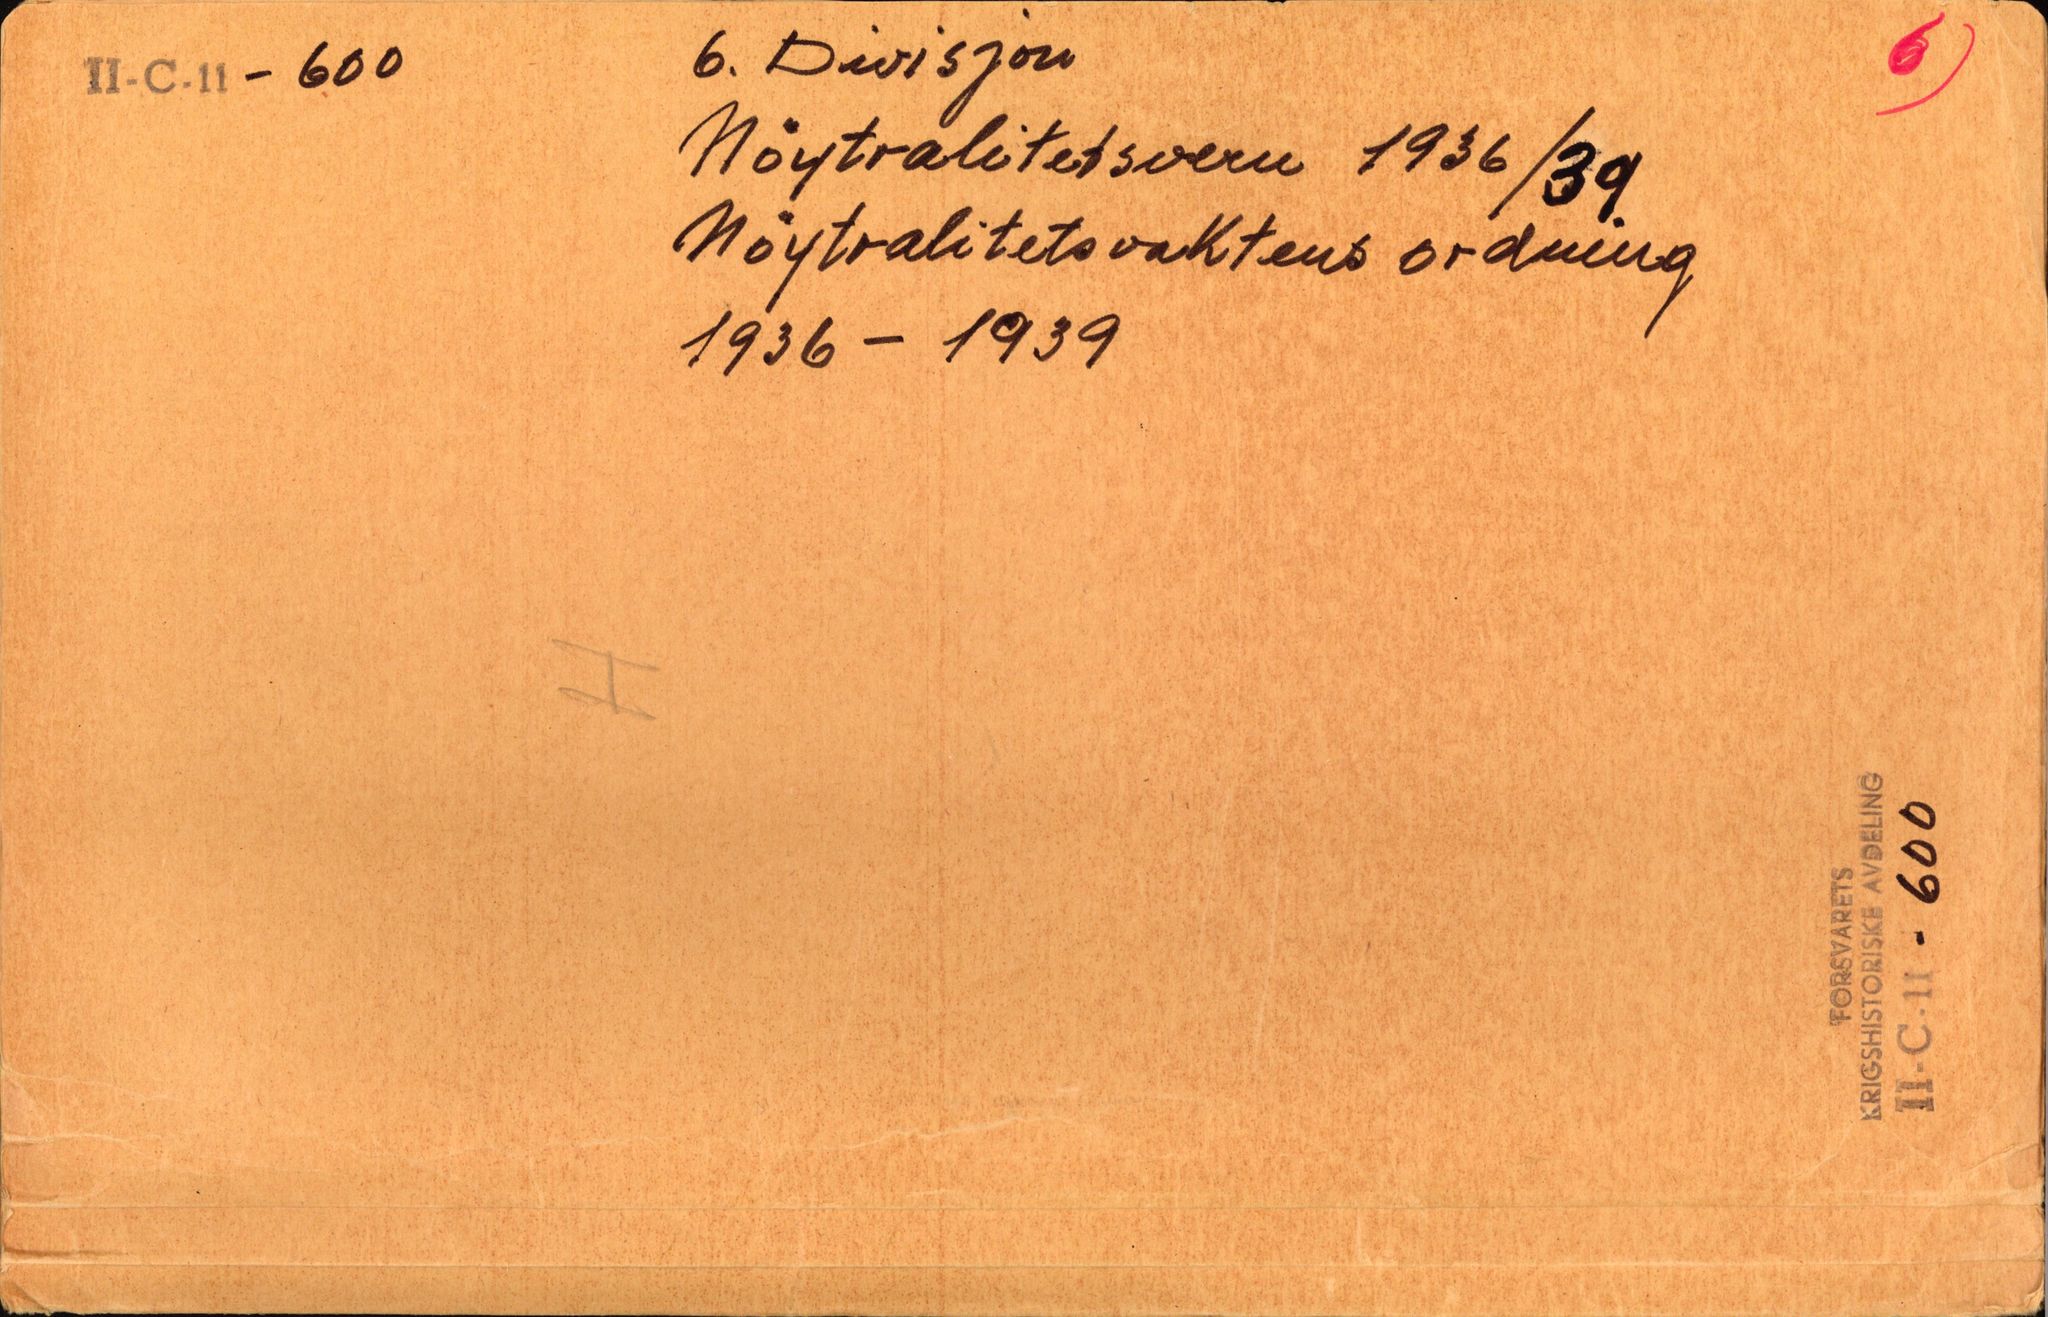 II-C-11 - 600
6. Divisjon
6)
Nöytralitetsvern 1936/39.
Nöytralitetsvaktens ordning
1936 - 1939
I
FORSVARETS
KRIGSHISTORISKE AVDELING
II-C-11 - 600